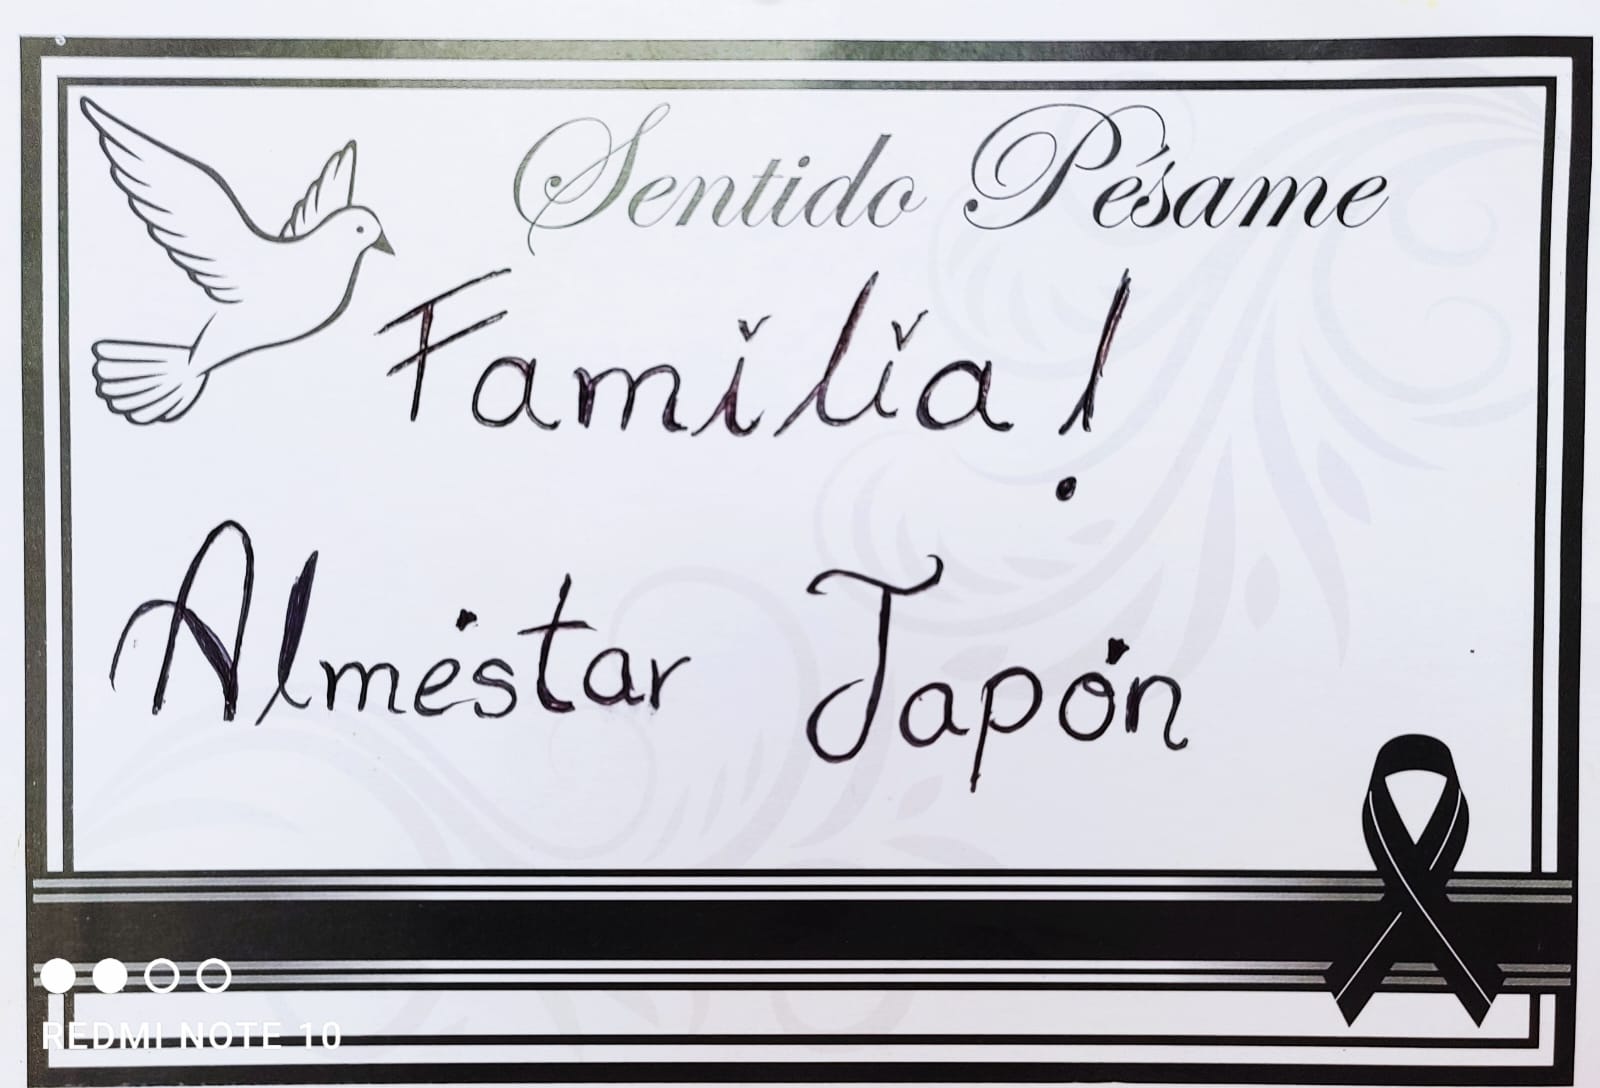 Sentido Pésame
Familia!
Alméstar Japón
REDMI NOTE 10